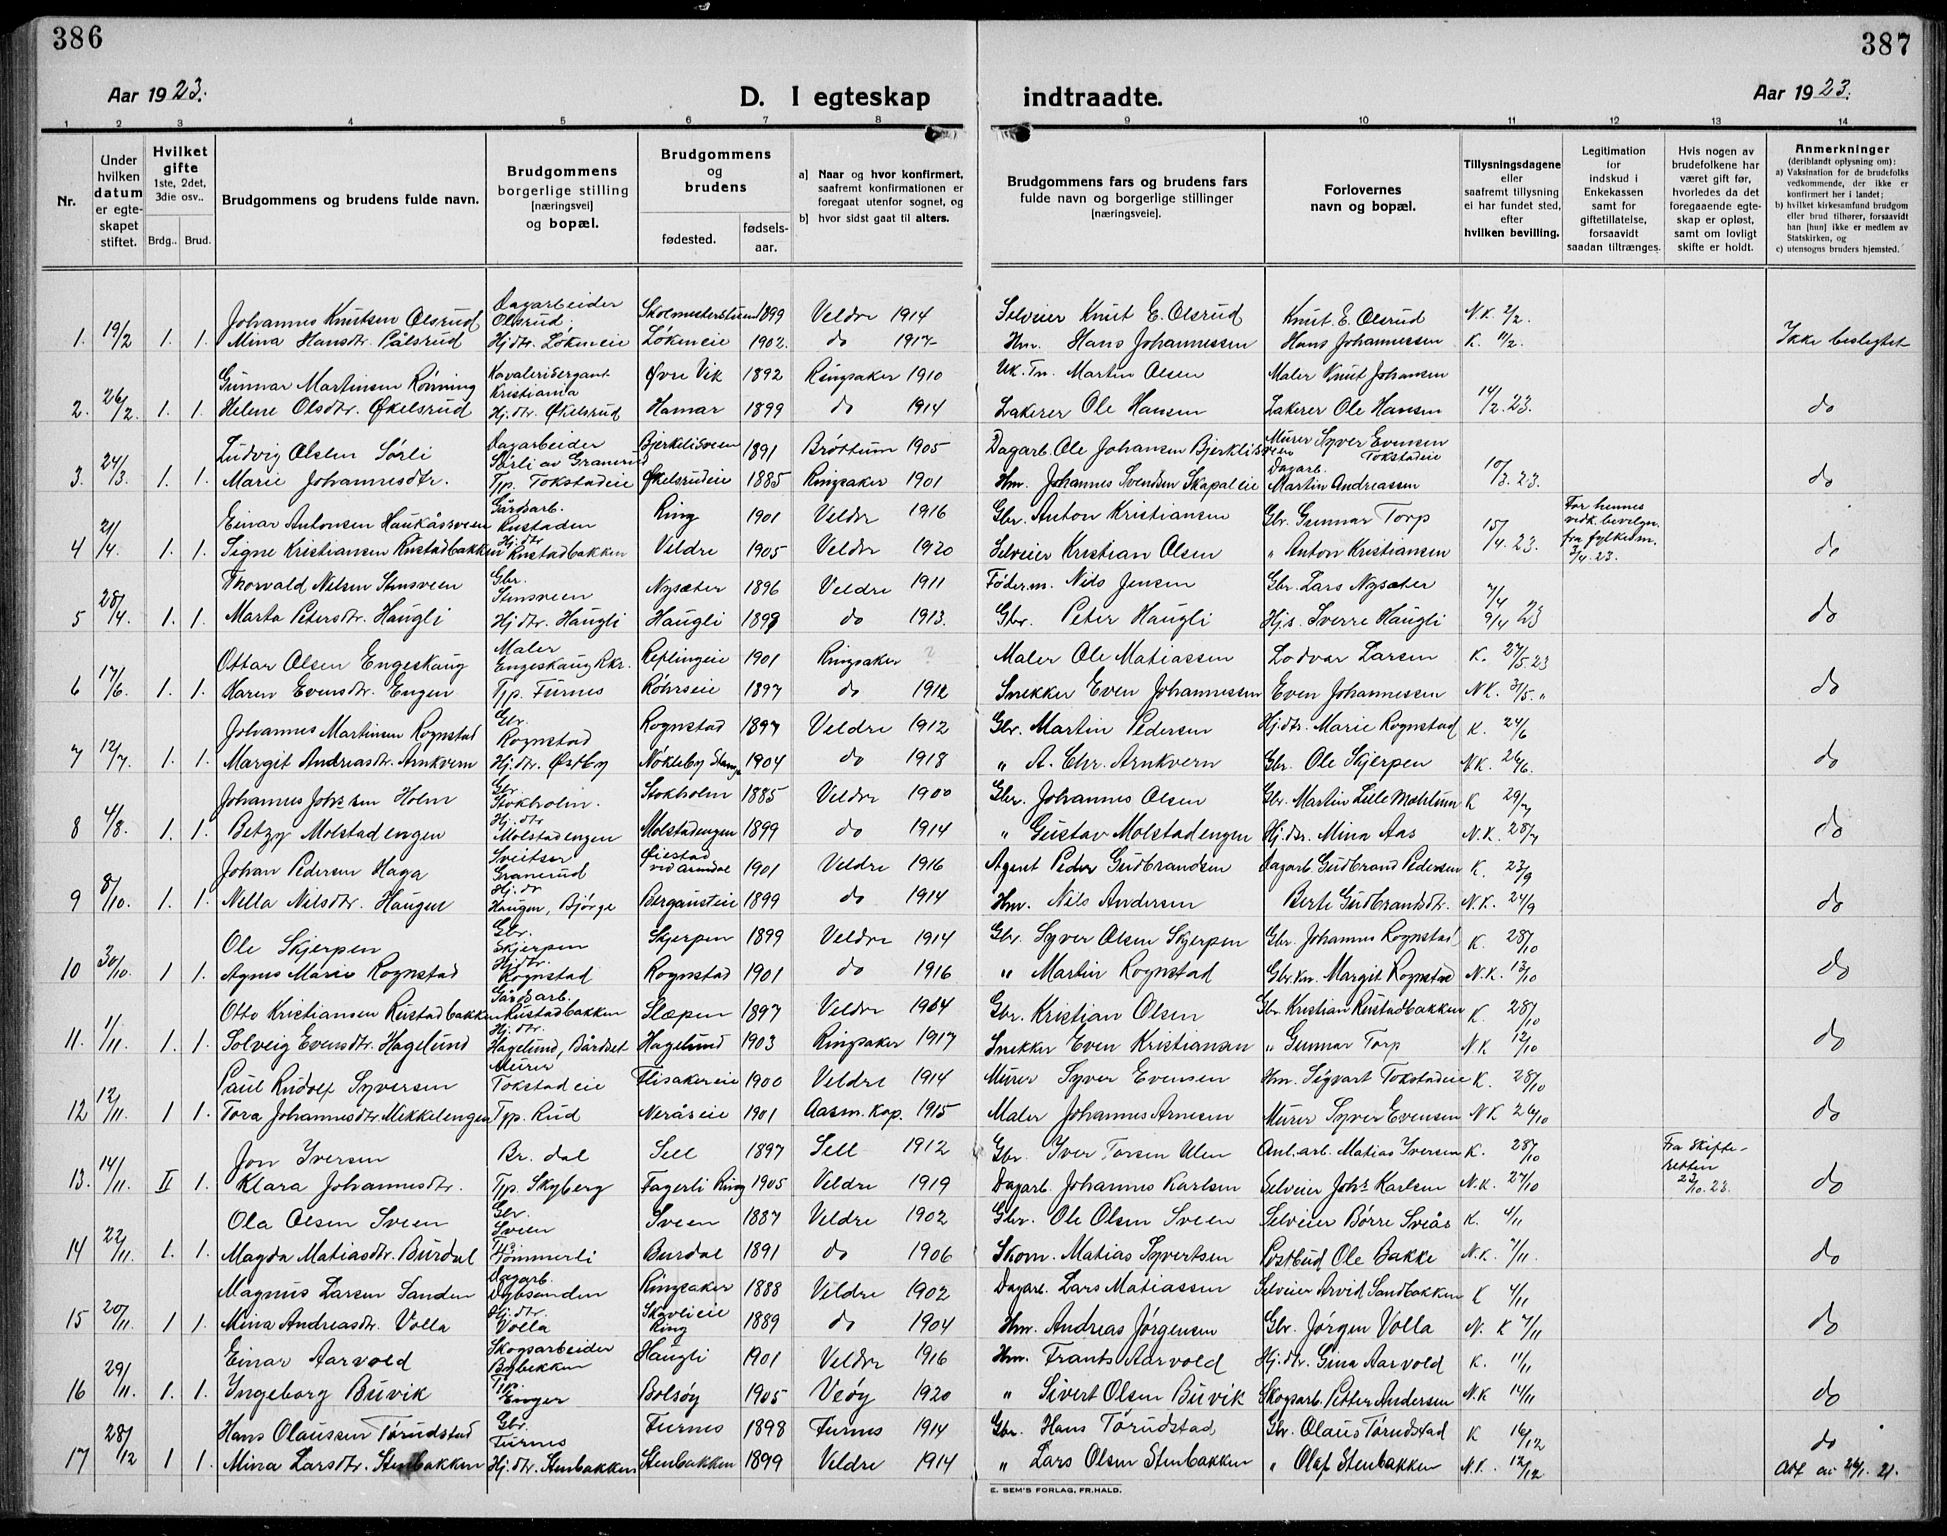 386
387
Aar 1923.
D. I egteskap
indtraadte.
Aar 1923.
1 2 3 4 5 6 7 8 9 10 11 12 13 14
Nr.
Under hvilken datum er egteskapet stiftet.
Hvilket gifte 1ste, 2det, 3die osv..
Brdg.. Brud.
Brudgommens og brudens fulde navn.
Brudgommens borgerlige stilling [næringsvei] og bopæl.
Brudgommens og brudens
fødested.
fødselsaar.
a) Naar og hvor konfirmert, saafremt konfirmationen er foregaat utenfor sognet, og
b) hvor sidst gaat til alters.
Brudgommens fars og brudens fars fulde navn og borgerlige stillinger [næringsveie].
Forlovernes navn og bopæl.
Tillysningsdagene eller saafremt tillysning ei har fundet sted, efter hvilken bevilling.
Legitimation for indskud i Enkekassen samt for giftetillatelse, forsaavidt saadan tiltrænges.
Hvis nogen av brudefolkene har været gift før, hvorledes da det foregaaende egteskap er opløst, samt om lovligt skifte er holdt.
Anmerkninger (deriblandt oplysning om):
a) Vaksination for de brudefolks vedkommende, der ikke er konfirmert her i landet;
b) hvilket kirkesamfund brudgom eller brud tilhører, forsaavidt han [hun] ikke er medlem av Statskirken, og
c) utensogns bruders hjemsted.
Johannes Knutsen Olsrud Dagarbeider Olsrud. 1899 Veldre 1914 Selveier Knut E. Olsrud Knut E. Olsrud N.K. 2/2.
1. 19/2 1. 1. Mina Hansdtr. Pålsrud Hj.dtr. Løkeneie Løkeneie 1902. do 1917 Hm. Hans Johannessen Hans Johannessen K. 11/2. Ikke beslegtet
Gunnar Martinsen Rønning Kavalerisergant Kristiania Øvre Vik 1892 Ringsaker 1910 Martin Olsen Maler Knut Johansen
2. 26/2. 1. 1. Helene Olsdtr. Økelsrud Hj.dtr. Økelsrud Hamar 1899 do 1914 Lakerer Ole Hansen Lakerer Ole Hansen 14/2. 23. do
Ludvig Olsen Sørli Dagarbeider Sørli av Granerud Bjerkelisveen 1891 Brøttum 1905 Dagarb. Ole Johansen Bjerklisveen Murer Syver Evensen Tokstadeie
3. 24/3. 1. 1. Marie Johannesdtr. Typ. Tokstadeie Økelsrudeie 1885 Ringsaker 1901 Hm. Johannes Svendsen Skapaleie Dagarb. Martin Andreassen 10/3. 23. do
Einar Antonsen Haukåssveen Gårdsarb. Rustaden Ring 1901 Veldre 1916 Gbr. Anton Kristiansen Gbr. Gunnar Torp
4 21/4. 1. 1. Signe Kristiansen Rustadbakken Hj.dtr Rustadbakken Veldre 1905 Veldre 1920 Selveier Kristian Olsen " Anton Kristiansen 15/4. 23. For hennes vedk. bevilgn. fra fylkesm. 3/4. 23. do
Thorvald Nilsen Stensveen Gbr. Stensveen Nysæter 1896 Veldre 1911 Føderm. Nils Jensen Gbr. Lars Nysæter 7/4
5 28/4. 1. 1. Marta Petersdtr. Haugli Hj.dtr. Haugli Haugli 1899 do 1913. Gbr. Peter Haugli Hj.s. Sverre Haugli 9/4 23 do
Ottar Olsen Engeskaug Maler Engeskaug Rkr. Replingeie 1901 Ringsaker ? Maler Ole Matiassen Lodvar Larsen K. 27/5. 23
6 17/6. 1. 1. Karen Evensdtr. Engen Typ. Furnes Røhrseie 1897 do 1912 Snekker Even Johannessen Even Johannessen N.K. 31/5. " do
Johannes Martinsen Rognstad Gbr. Rognstad Rognstad 1897 Veldre 1912 Gbr. Martin Pedersen Hj.dtr. Marie Rognstad K. 24/6
7 12/7. 1. 1. Margit Andreasdtr. Arnkvern Hj.dtr. Østby Nøkleby Stange 1904 do 1918 " A. Chr. Arnkvern Gbr. Ole Skjerpen N.K. 26/6. do
Johannes Johssen Holm Gbr. Stokholm. Stokholm 1885 Veldre 1900 Gbr. Johannes Olsen Gbr. Martin Lille Mæhlum K 29/7
8 4/8. 1. 1. Betzy Molstadengen Hj.dtr Molstadengen Molstadengen 1899 do 1914 " Gustav Molstadengen Hj.dtr. Mina Aas N.K. 28/7 do
Johan Pedersen Haga Sveitser Granerud Øiestad ved Arendal 1901 Veldre 1916 Agent Peder Gudbrandsen Dagarb. Gudbrand Pedersen K. 23/9
9 8/10. 1. 1. Nella Nilsdtr. Haugen Hj.dtr Haugen, Bjørge Bergausteie 1899 do 1914 Hm. Nils Andersen Berte Gudbrandsdtr. N.K. 24/9 do
Ole Skjerpen Gbr. Skjerpen Skjerpen 1899 Veldre 1914 Gbr. Syver Olsen Skjerpen Gbr. Johannes Rognstad K. 28/10
10 30/10. 1 1. Agnes Marie Rognstad Hj.dtr. Rognstad Rognstad 1901 do 1916 " Martin Rognstad Gbr.kn. Margit Rognstad N.K. 13/10 do
Otto Kristiansen Rustadbakken Gårdsarb. Rustadbakken Slæpen 1897 Veldre 1914 Gbr. Kristian Olsen Gbr. Kristian Rustadbakken K. 28/10
11. 1/11. 1. 1. Solveig Evensdtr. Hagelund Hj.dtr. Hagelund, Bårdset Hagelund 1903 Ringsaker 1917 Snekker Even Kristiansen " Gunnar Torp N.K 12/10 do
Paul Rudolf Syversen Murer Tokstadeie Flisakereie 1900 Veldre 1914 Murer Syver Evensen Hm. Sigvart Tokstadeie K. 28/10
12 12/11. 1 1. Tora Johannesdtr. Mikkelengen Typ. Rud Neråseie 1901 Aasm. kap. 1915 Maler Johannes Arnesen Murer Syver Evensen N.K 26/10 do
Jon Iversen Br. dal Sell 1897 Sell 1912 Gbr. Iver Torsen Ulen Anl.arb. Matias Iversen K. 28/10 Fra Skifteretten 23/10. 23.
13. 14/11. II 1. Klara Johannesdtr. Typ. Skyberg Fagerli Ring 1905 Veldre 1919 Dagarb. Johannes Karlsen Selveier Johs Karlsen N.K. 27/10 do
Ola Olsen Sveen Gbr. Sveen Sveen 1887 Veldre 1902 Gbr. Ole Olsen Sveen Selveier Børre Sveås K. 4/11
14 22/11. 1. 1. Magda Matiasdtr. Burdal Tømmerli Burdal 1891 do 1906 Skom. Matias Syvertsen Postbud Ole Bakke N.K. 7/11. do
Magnus Larsen Sanden Dagarb. Dybsanden Ringsaker 1888 Veldre 1902 Dagarb. Lars Matiassen Selveier Arvid Sandbakken K 4/11
15 20/11. 1 1. Mina Andreasdtr. Volla Hj.dtr. Volla Skavlieie Ring 1889 do 1904 Hm. Andreas Jørgensen Gbr. Jørgen Volla N. K 7/11 do
Einar Aarvold Skogsarbeider Bybekken Haugli 1901 Veldre 1916 Hm. Frants Aarvold Hj.dtr. Gina Aarvold K. 11/11
16 29/11. 1. 1. Ingeborg Buvik Typ. Enger Bolsøy 1905 Veøy 1920 " Sivert Olsen Buvik Skogsarb. Petter Andersen N.K 14/11 do
Hans Olaussen Tørudstad Gbr. Furnes Furnes 1898 Furnes 1914 Gbr. Hans Tørudstad Gbr. Olaus Tørudstad K 16/12
17 28/12 1 1. Mina Larsdtr. Stenbakken Hj.dtr. Stenbakken Stenbakken 1899 Veldre 1914 " Lars Olsen Stenbakken " Olaf Stenbakken N.K. 12/12 do
26/1. 21.
E. SEM'S FORLAG, FR.HALD.